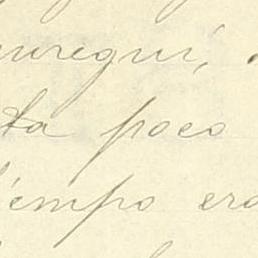 uregui,
ta poco
iempo era